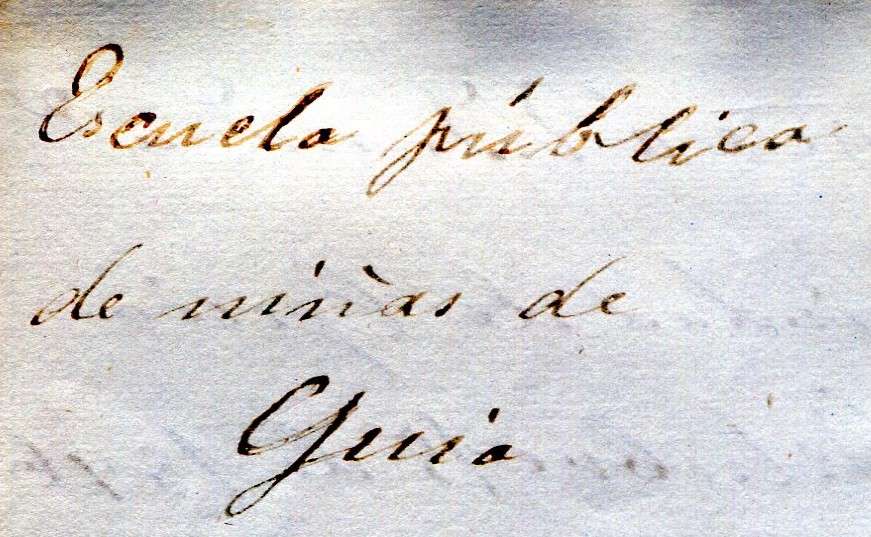 Escuela pública
de niñas de
Guia